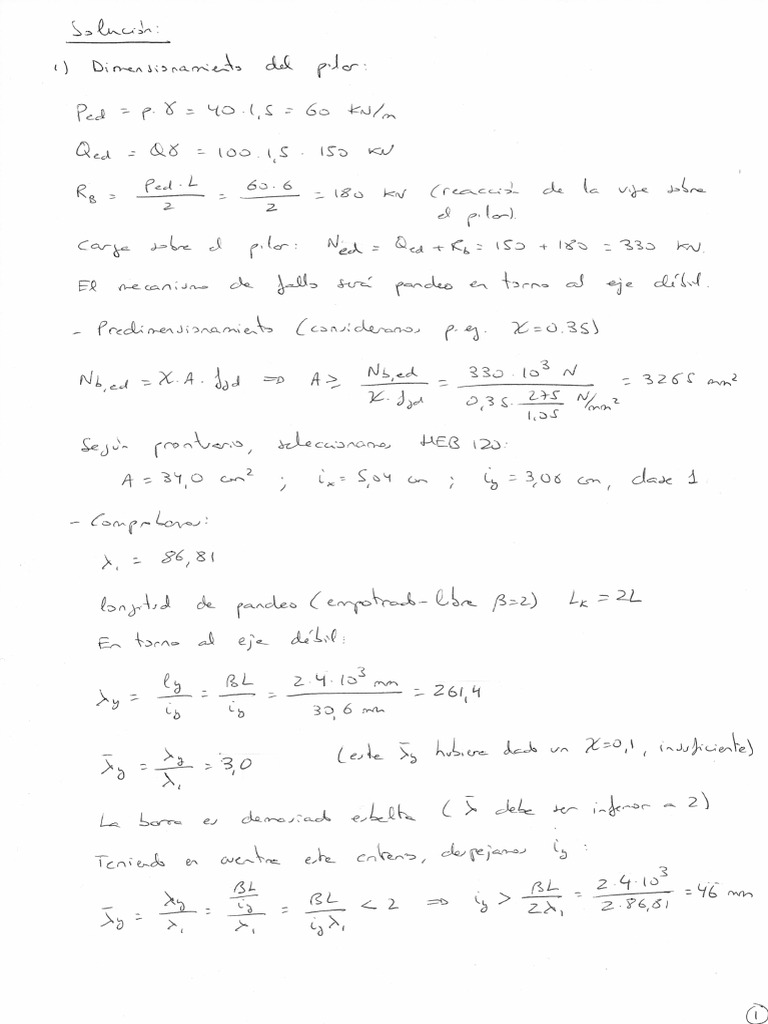 Solución:
1) Dimensionamiento del pilar:
Ped = p.γ = 40.1,5 = 60 KN/m
Qed = Qγ = 100.1,5 = 150 KN
RB = Ped.L / 2 = 60.6 / 2 = 180 KN (reacción de la viga sobre
el pilar).
Carga sobre el pilar: Ned = Qed + Rb = 150 + 180 = 330 KN.
El mecanismo de fallo será pandeo en torno al eje débil.
- Predimensionamiento (consideramos p.ej. χ=0.35)
Nb,ed = χ.A.fyd ⇒ A ≥ Nb,ed / χ.fyd = 330.10³ N / 0,35. 275/1,05 N/mm² = 3265 mm²
Según prontuario, seleccionamos HEB 120:
A = 34,0 cm² ; ix = 5,04 cm ; iy = 3,06 cm, clase 1
- Comprobamos:
λ₁ = 86,81
longitud de pandeo (empotrado-libre β=2) Lk = 2L
En torno al eje débil:
λy = ly / iy = βL / iy = 2.4.10³ mm / 30,6 mm = 261,4
λ̄y = λy / λ₁ = 3,0 (este λ̄y hubiera dado un χ=0,1, insuficiente)
La barra es demasiado esbelta (λ̄ debe ser inferior a 2)
Teniendo en cuenta este criterio, despejamos iy:
λ̄y = λy / λ₁ = (βL / iy) / λ₁ = βL / iy λ₁ < 2 ⇒ iy > βL / 2λ₁ = 2.4.10³ / 2.86,81 = 46 mm
1